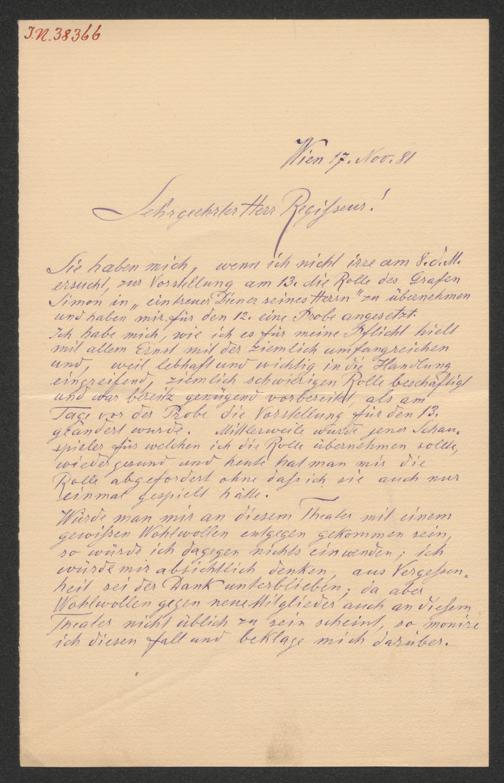 I.N. 38366
Wien 17. Nov. 81
Sehrgeehrter Herr Regisseur!
Sie haben mich, wenn ich nicht irre am 8. d. M.
ersucht, zur Vorstellung am 13. die Rolle des Grafen
Simon in „ein treuer Diener seines Herrn" zu übernehmen
und haben mir für den 12. eine Probe angesetzt.
Ich habe mich, wie ich es für meine Pflicht hielt
mit allem Ernst mit der ziemlich umfangreichen
und, weil lebhaft und wichtig in die Handlung
eingreifend, ziemlich schwierigen Rolle beschäftigt
und war bereits genügend vorbereitet, als am
Tage vor der Probe die Vorstellung für den 13.
geändert wurde. Mittlerweile wurde jener Schau-
spieler für welchen ich die Rolle übernehmen sollte,
wieder gesund und heute hat man mir die
Rolle abgefordert ohne daß ich sie auch nur
einmal gespielt hätte.
Würde man mir an diesem Theater mit einem
gewißen Wohlwollen entgegen gekommen sein,
so würde ich dagegen nichts einwenden; ich
würde mir absichtlich denken, aus Vergessen-
heit sei der Dank unterblieben, da aber
Wohlwollen gegen neue Mitglieder auch an diesem
Theater nicht üblich zu sein scheint, so monire
ich diesen Fall und beklage mich darüber.